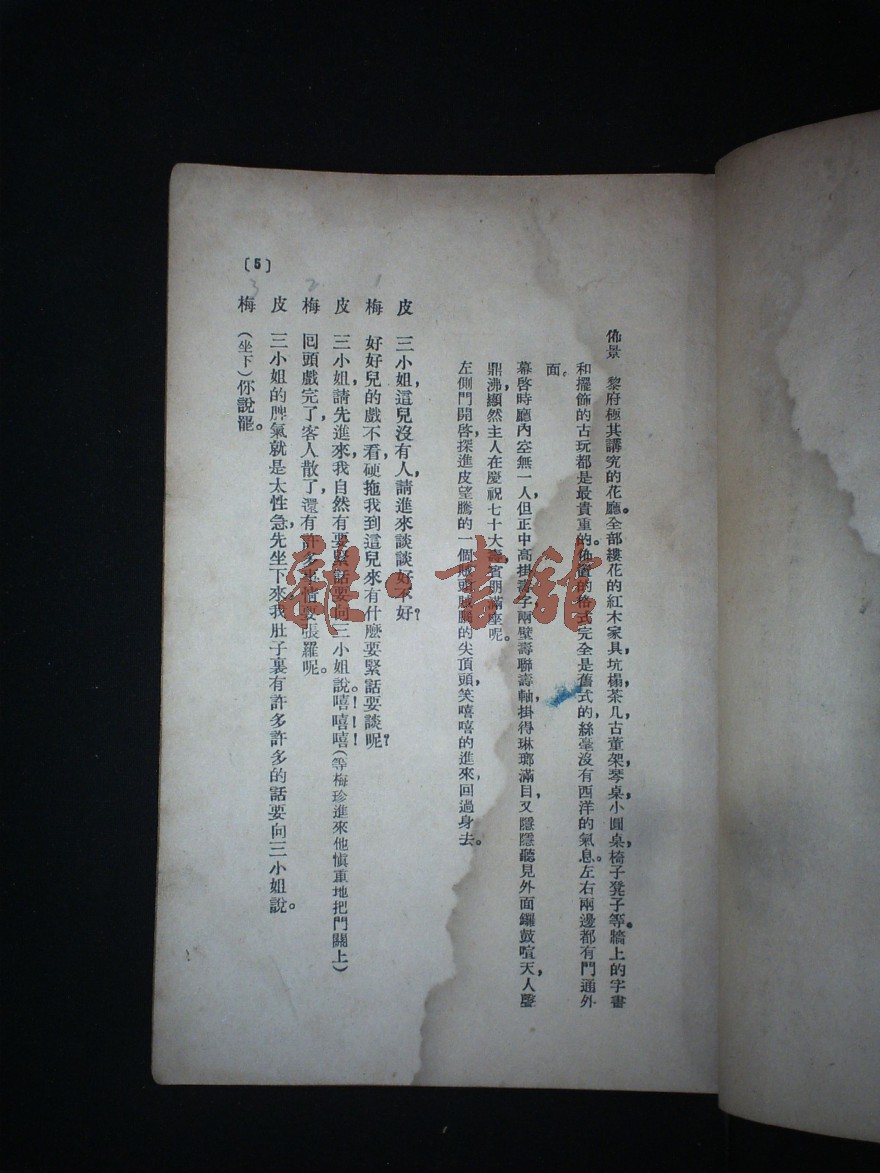 佈景　黎府極其講究的花廳。全部縷花的紅木家具，坑榻，茶几，古董架，琴桌，小圓桌，椅子凳子等。牆上的字畫
和擺飾的古玩都是最貴重的。佈置的格式完全是舊式的，絲毫沒有西洋的氣息。左右兩邊都有門通外
面。
幕啓時廳內空無一人，但正中高掛壽字，兩壁壽聯壽軸，掛得琳瑯滿目，又隱隱聽見外面鑼鼓喧天，人聲
鼎沸，顯然主人在慶祝七十大壽，賓朋滿座呢。
左側門開啓，探進皮望騰的一個 頭 腦的尖頂頭，笑嘻嘻的進來，回過身去。
皮　三小姐，這兒沒有人，請進來談談好不好？
梅　好好兒的戲不看，硬拖我到這兒來有什麼要緊話要談呢？
皮　三小姐，請先進來，我自然有要緊話要向三小姐說。嘻！嘻！嘻！（等梅珍進來他慎重地把門關上）
梅　回頭戲完了，客人散了，還有許多事情要張羅呢。
皮　三小姐的脾氣就是太性急，先坐下來，我肚子裏有許多許多的話要向三小姐說。
梅　（坐下）你說罷。
〔5〕
1
2
3
雜·書館